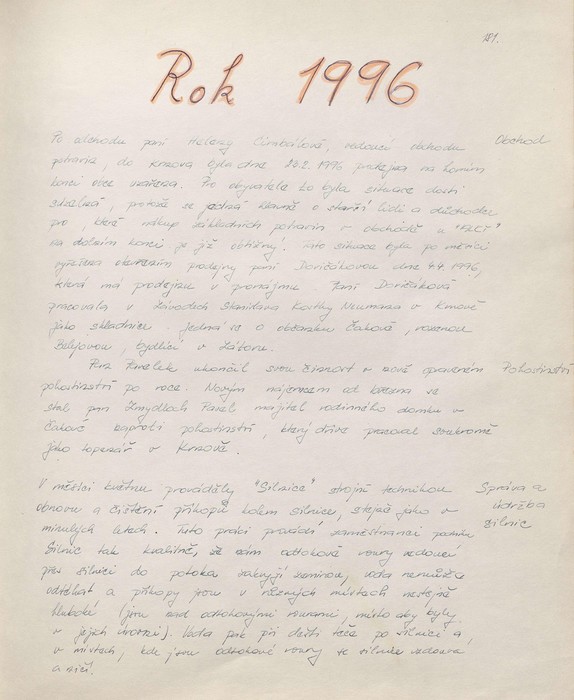 181.
Rok 1996
Po odchodu paní Heleny Cimbálové, vedoucí obchodu Obchod
potravin, do Krnova byla dne 23.2. 1996 prodejna na horním
konci obce uzavřena. Pro obyvatele to byla situace dosti
složitá, protože se jedná hlavně o starší lidi a důchodce
pro, které nákup základních potravin v obchodě u "FLET"
na dolním konci je již obtížný. Tato situace byla po měsíci
vyřešena otevřením prodejny paní Doričákovou dne 4.4.1996,
která má prodejnu v pronájmu. Paní Doričáková
pracovala v závodech Stanislava Kostky Neumana v Krnově
jako skladnice. Jedná se o občanku Čakové, rozenou
Bilejovou, bydlící v Zátoru.
Pan Pavelek ukončil svou činnost v nově opraveném Pohostinství
pohostinství po roce. Novým nájemcem od března se
stal pan Zmydlach Pavel majitel rodinného domku v
Čakové naproti pohostinství, který dříve pracoval soukromě
jako topenář v Krnově.
V měsíci květnu prováděly "Silnice" strojní technikou Správa a
obnovu a čištění příkopů kolem silnice, stejně jako v údržba
minulých letech. Tuto práci provádí zaměstnanci podniku silnic
Silnic tak kvalitně, že nám odtokové roury vedoucí
přes silnici do potoka zakryjí zeminou, voda nemůže
odtékat a příkopy jsou v různých místech nestejně
hluboké (jsou nad odtokovými rourami, místo aby byly
v jejich úrovni). Voda pak při dešti teče po silnici a,
v místech, kde jsou odtokové roury se silnice
a ničí.